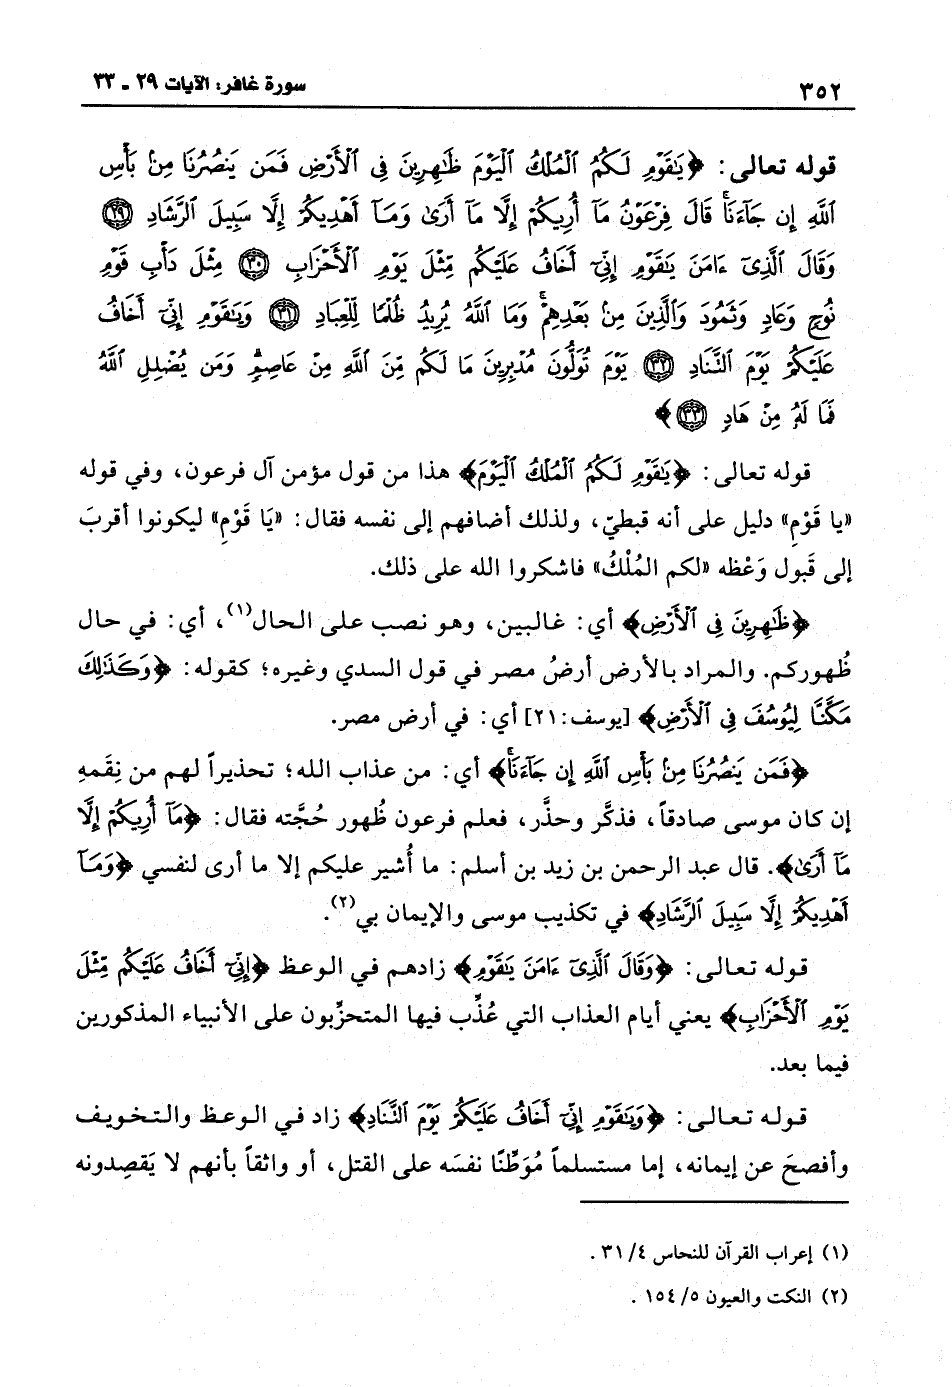 ٣٥٢
سورة غافر: الآيات ٢٩ ـ ٣٣
قوله تعالى: ﴿يَٰقَوْمِ لَكُمُ ٱلْمُلْكُ ٱلْيَوْمَ ظَٰهِرِينَ فِى ٱلْأَرْضِ فَمَن يَنصُرُنَا مِنۢ بَأْسِ
ٱللَّهِ إِن جَآءَنَا ۚ قَالَ فِرْعَوْنُ مَآ أُرِيكُمْ إِلَّا مَآ أَرَىٰ وَمَآ أَهْدِيكُمْ إِلَّا سَبِيلَ ٱلرَّشَادِ ۝٢٩
وَقَالَ ٱلَّذِىٓ ءَامَنَ يَٰقَوْمِ إِنِّىٓ أَخَافُ عَلَيْكُم مِّثْلَ يَوْمِ ٱلْأَحْزَابِ ۝٣٠ مِثْلَ دَأْبِ قَوْمِ
نُوحٍ وَعَادٍ وَثَمُودَ وَٱلَّذِينَ مِنۢ بَعْدِهِمْ ۚ وَمَا ٱللَّهُ يُرِيدُ ظُلْمًا لِّلْعِبَادِ ۝٣١ وَيَٰقَوْمِ إِنِّىٓ أَخَافُ
عَلَيْكُمْ يَوْمَ ٱلتَّنَادِ ۝٣٢ يَوْمَ تُوَلُّونَ مُدْبِرِينَ مَا لَكُم مِّنَ ٱللَّهِ مِنْ عَاصِمٍ ۗ وَمَن يُضْلِلِ ٱللَّهُ
فَمَا لَهُۥ مِنْ هَادٍ ۝٣٣﴾
قوله تعالى: ﴿يَٰقَوْمِ لَكُمُ ٱلْمُلْكُ ٱلْيَوْمَ﴾ هذا من قول مؤمن آل فرعون، وفي قوله
«يا قَوْمِ» دليل على أنه قبطيّ، ولذلك أضافهم إلى نفسه فقال: «يَا قَوْمِ» ليكونوا أقربَ
إلى قَبول وَعْظه «لكم المُلْكُ» فاشكروا الله على ذلك.
﴿ظَٰهِرِينَ فِى ٱلْأَرْضِ﴾ أي: غالبين، وهو نصب على الحال(١)، أي: في حال
ظُهوركم. والمراد بالأرض أرضُ مصر في قول السدي وغيره؛ كقوله: ﴿وَكَذَٰلِكَ
مَكَّنَّا لِيُوسُفَ فِى ٱلْأَرْضِ﴾ [يوسف: ٢١] أي: في أرض مصر.
﴿فَمَن يَنصُرُنَا مِنۢ بَأْسِ ٱللَّهِ إِن جَآءَنَا ۚ﴾ أي: من عذاب الله؛ تحذيراً لهم من نِقَمهِ
إن كان موسى صادقاً، فذكَّر وحذَّر، فعلم فرعون ظُهور حُجَّته فقال: ﴿مَآ أُرِيكُمْ إِلَّا
مَآ أَرَىٰ﴾. قال عبد الرحمن بن زيد بن أسلم: ما أُشير عليكم إلا ما أرى لنفسي ﴿وَمَآ
أَهْدِيكُمْ إِلَّا سَبِيلَ ٱلرَّشَادِ﴾ في تكذيب موسى والإيمان بي(٢).
قوله تعالى: ﴿وَقَالَ ٱلَّذِىٓ ءَامَنَ يَٰقَوْمِ﴾ زادهم في الوعظ ﴿إِنِّىٓ أَخَافُ عَلَيْكُم مِّثْلَ
يَوْمِ ٱلْأَحْزَابِ﴾ يعني أيام العذاب التي عُذِّب فيها المتحزِّبون على الأنبياء المذكورين
فيما بعد.
قوله تعالى: ﴿وَيَٰقَوْمِ إِنِّىٓ أَخَافُ عَلَيْكُمْ يَوْمَ ٱلتَّنَادِ﴾ زاد في الوعظ والتخويف
وأفصحَ عن إيمانه، إما مستسلماً مُوَطِّنًا نفسَه على القتل، أو واثقاً بأنهم لا يَقصِدونه
(١) إعراب القرآن للنحاس ٤/ ٣١ .
(٢) النكت والعيون ٥/ ١٥٤ .